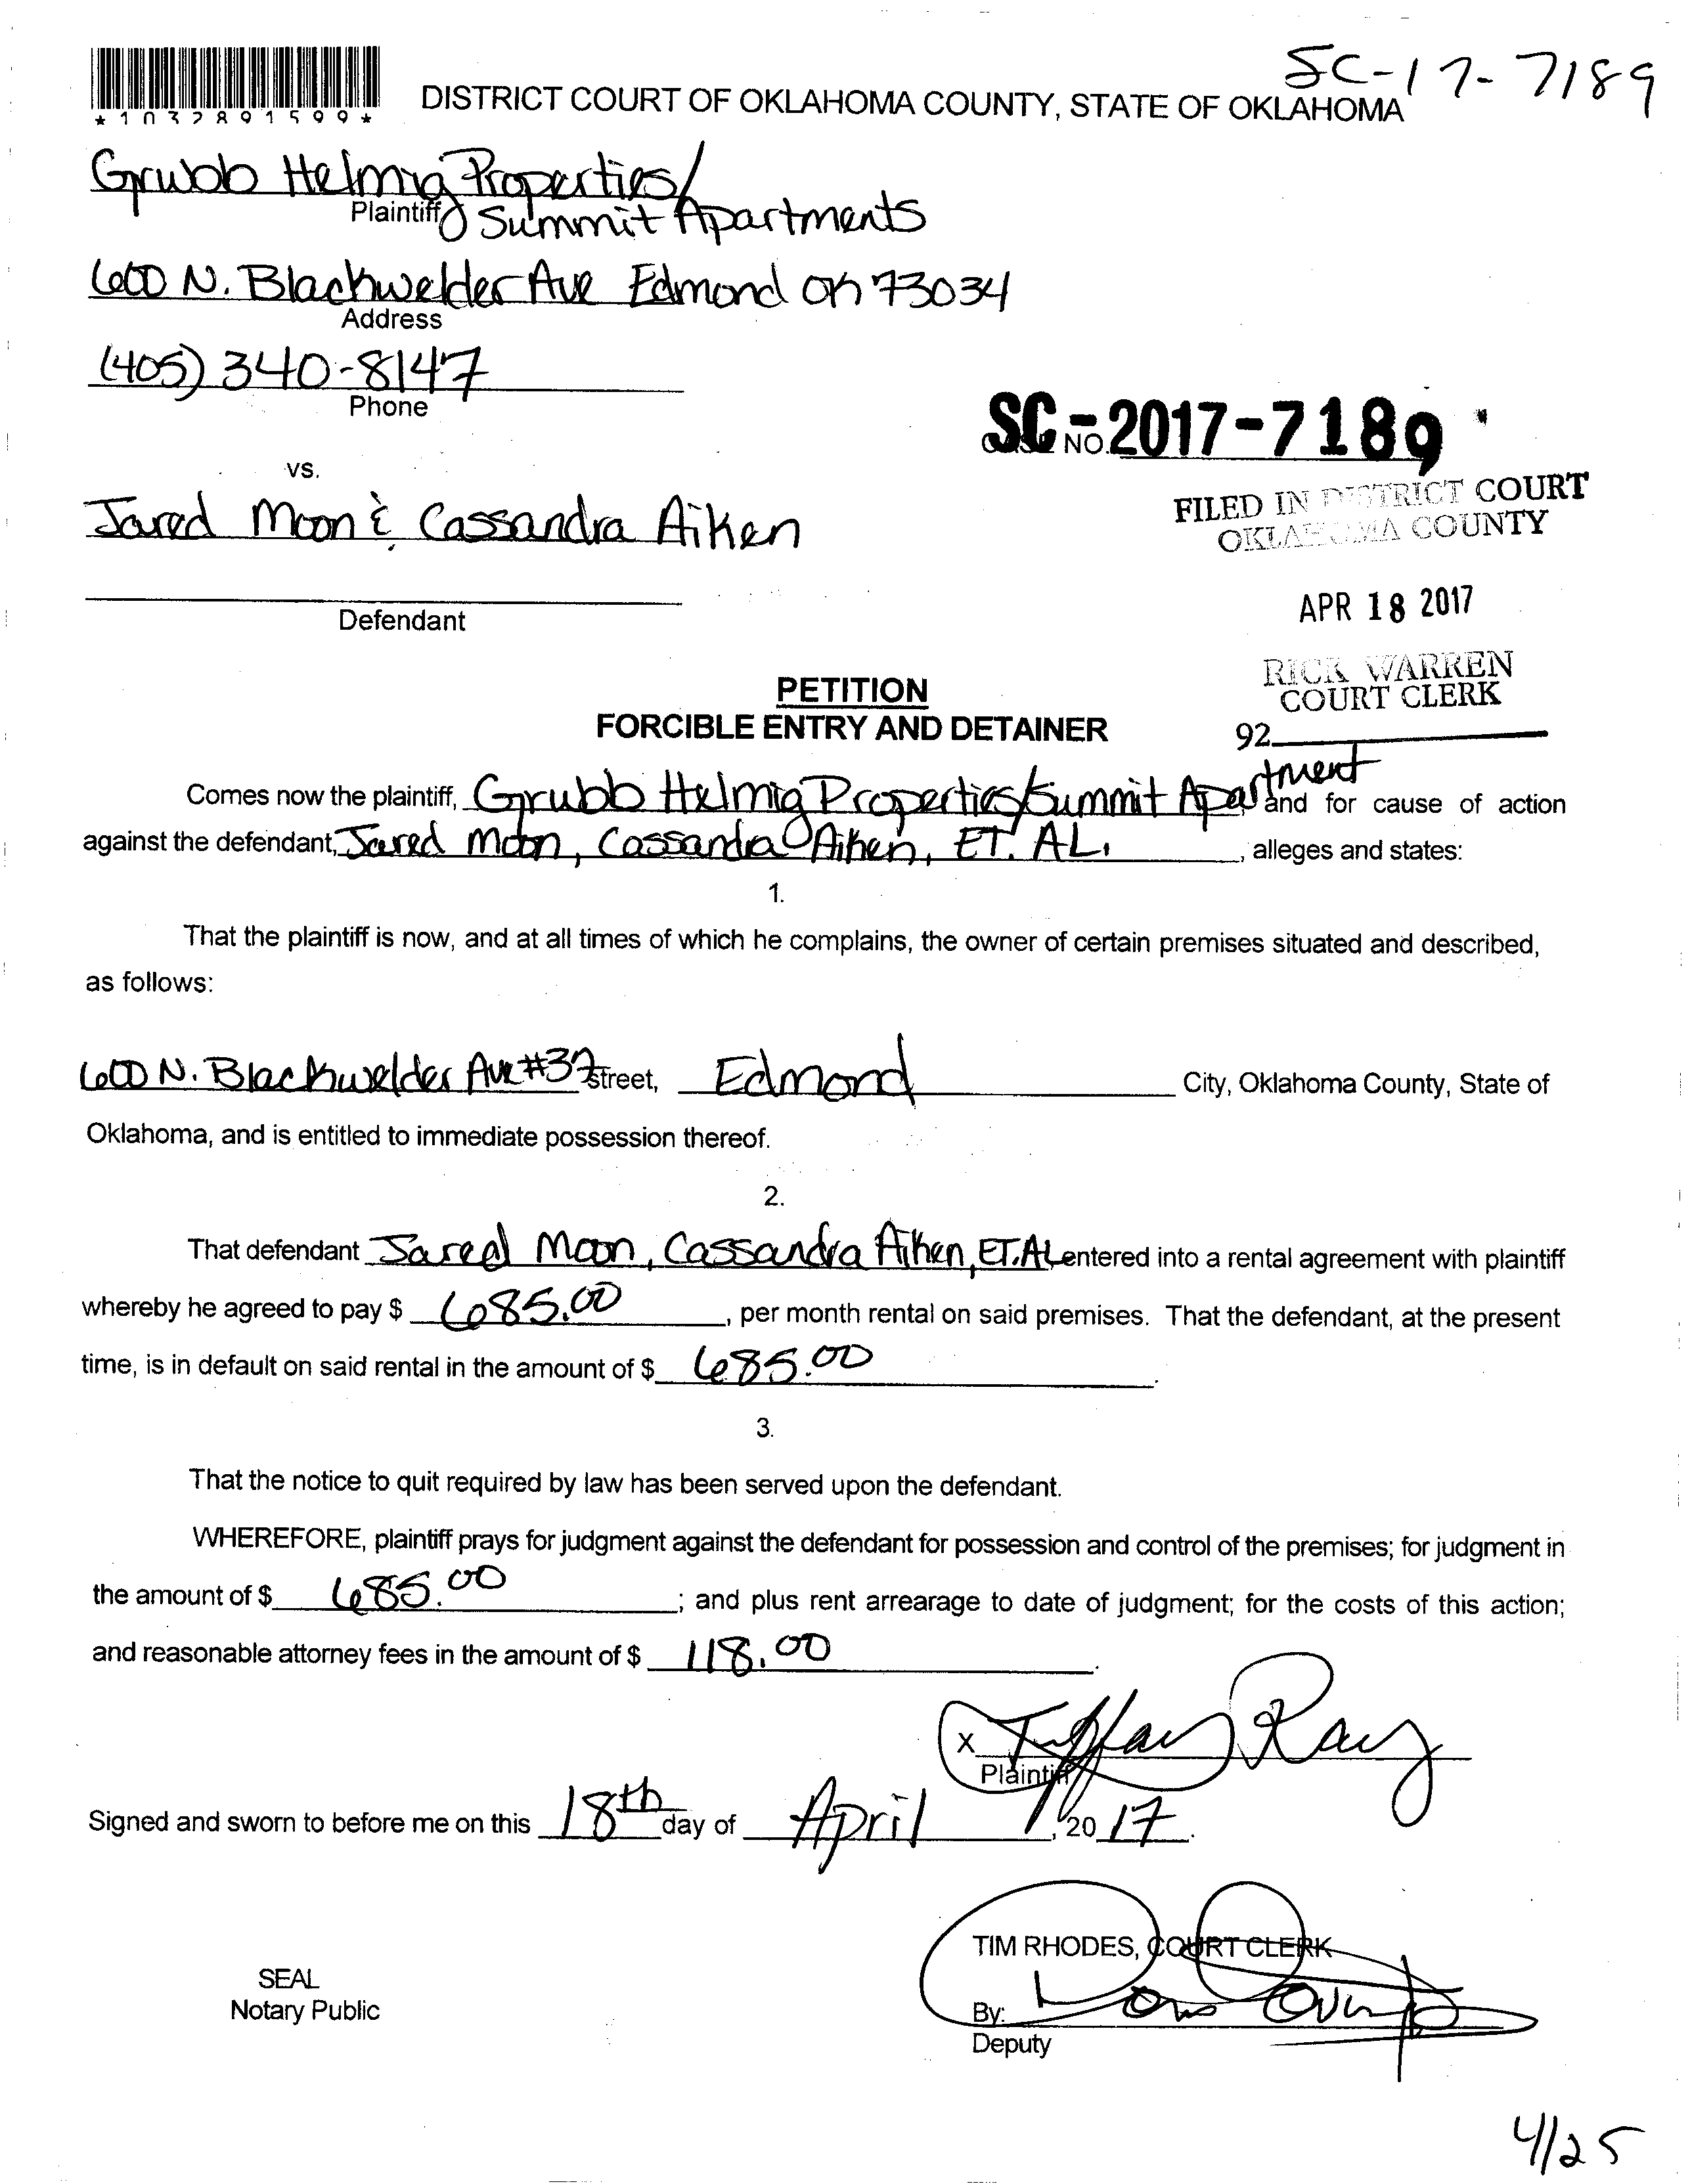 SC-17-7189
*1032891599*
DISTRICT COURT OF OKLAHOMA COUNTY, STATE OF OKLAHOMA
Grubb Helmig Properties/
Plaintiff Summit Apartments
600 N. Blackwelder Ave Edmond OK 73034
Address
(405) 340-8147
Phone
SC-2017-7189
NO.
vs.
FILED IN DISTRICT COURT
OKLAHOMA COUNTY
Jared Moon & Cassandra Aiken
APR 18 2017
Defendant
RICK WARREN
COURT CLERK
92
PETITION
FORCIBLE ENTRY AND DETAINER
Comes now the plaintiff, Grubb Helmig Properties/Summit Apartment, and for cause of action
against the defendant, Jared Moon, Cassandra Aiken, ET. AL., alleges and states:
1.
That the plaintiff is now, and at all times of which he complains, the owner of certain premises situated and described,
as follows:
600 N. Blackwelder Ave #37 street, Edmond City, Oklahoma County, State of
Oklahoma, and is entitled to immediate possession thereof.
2.
That defendant Jared Moon, Cassandra Aiken, ET. AL entered into a rental agreement with plaintiff
whereby he agreed to pay $ 685.00, per month rental on said premises. That the defendant, at the present
time, is in default on said rental in the amount of $ 685.00.
3.
That the notice to quit required by law has been served upon the defendant.
WHEREFORE, plaintiff prays for judgment against the defendant for possession and control of the premises; for judgment in
the amount of $ 685.00; and plus rent arrearage to date of judgment; for the costs of this action;
and reasonable attorney fees in the amount of $ 118.00.
X Tiffany Ray
Plaintiff
Signed and sworn to before me on this 18th day of April, 20 17.
TIM RHODES, COURT CLERK
SEAL
Notary Public
By:
Deputy
4/25